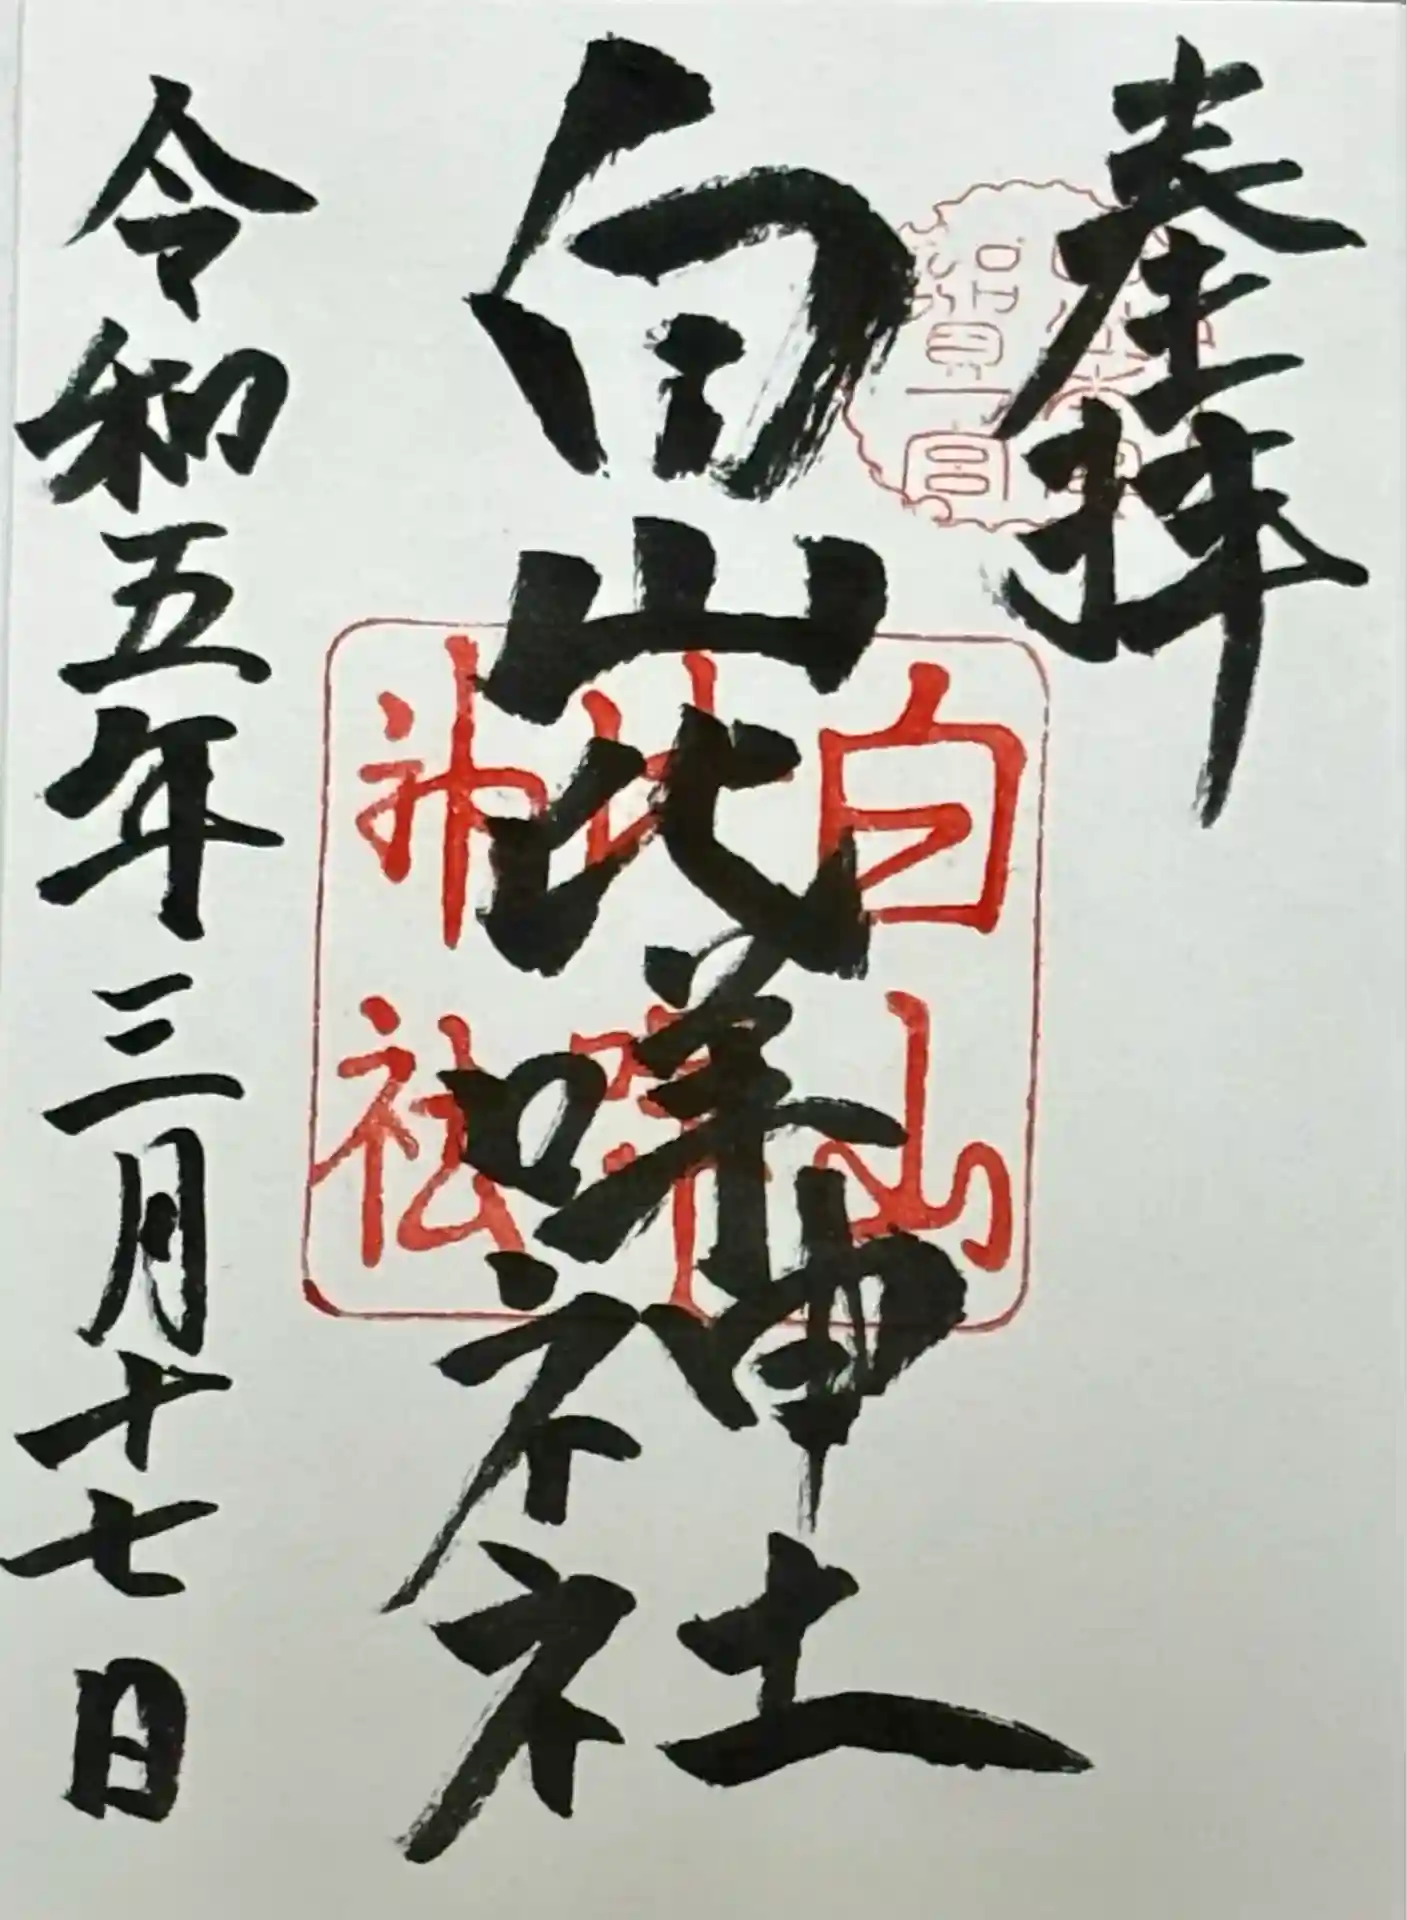 奉拝
白山比咩神社
令和五年三月十七日
白山
比咩
神社